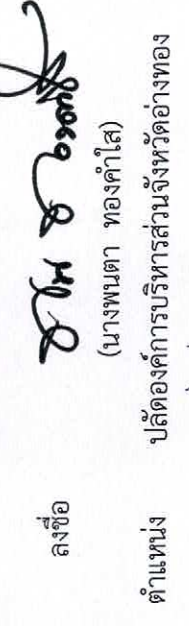 ลงชื่อ
(นางพนตา ทองคำใส)
ตำแหน่ง ปลัดองค์การบริหารส่วนจังหวัดอ่างทอง